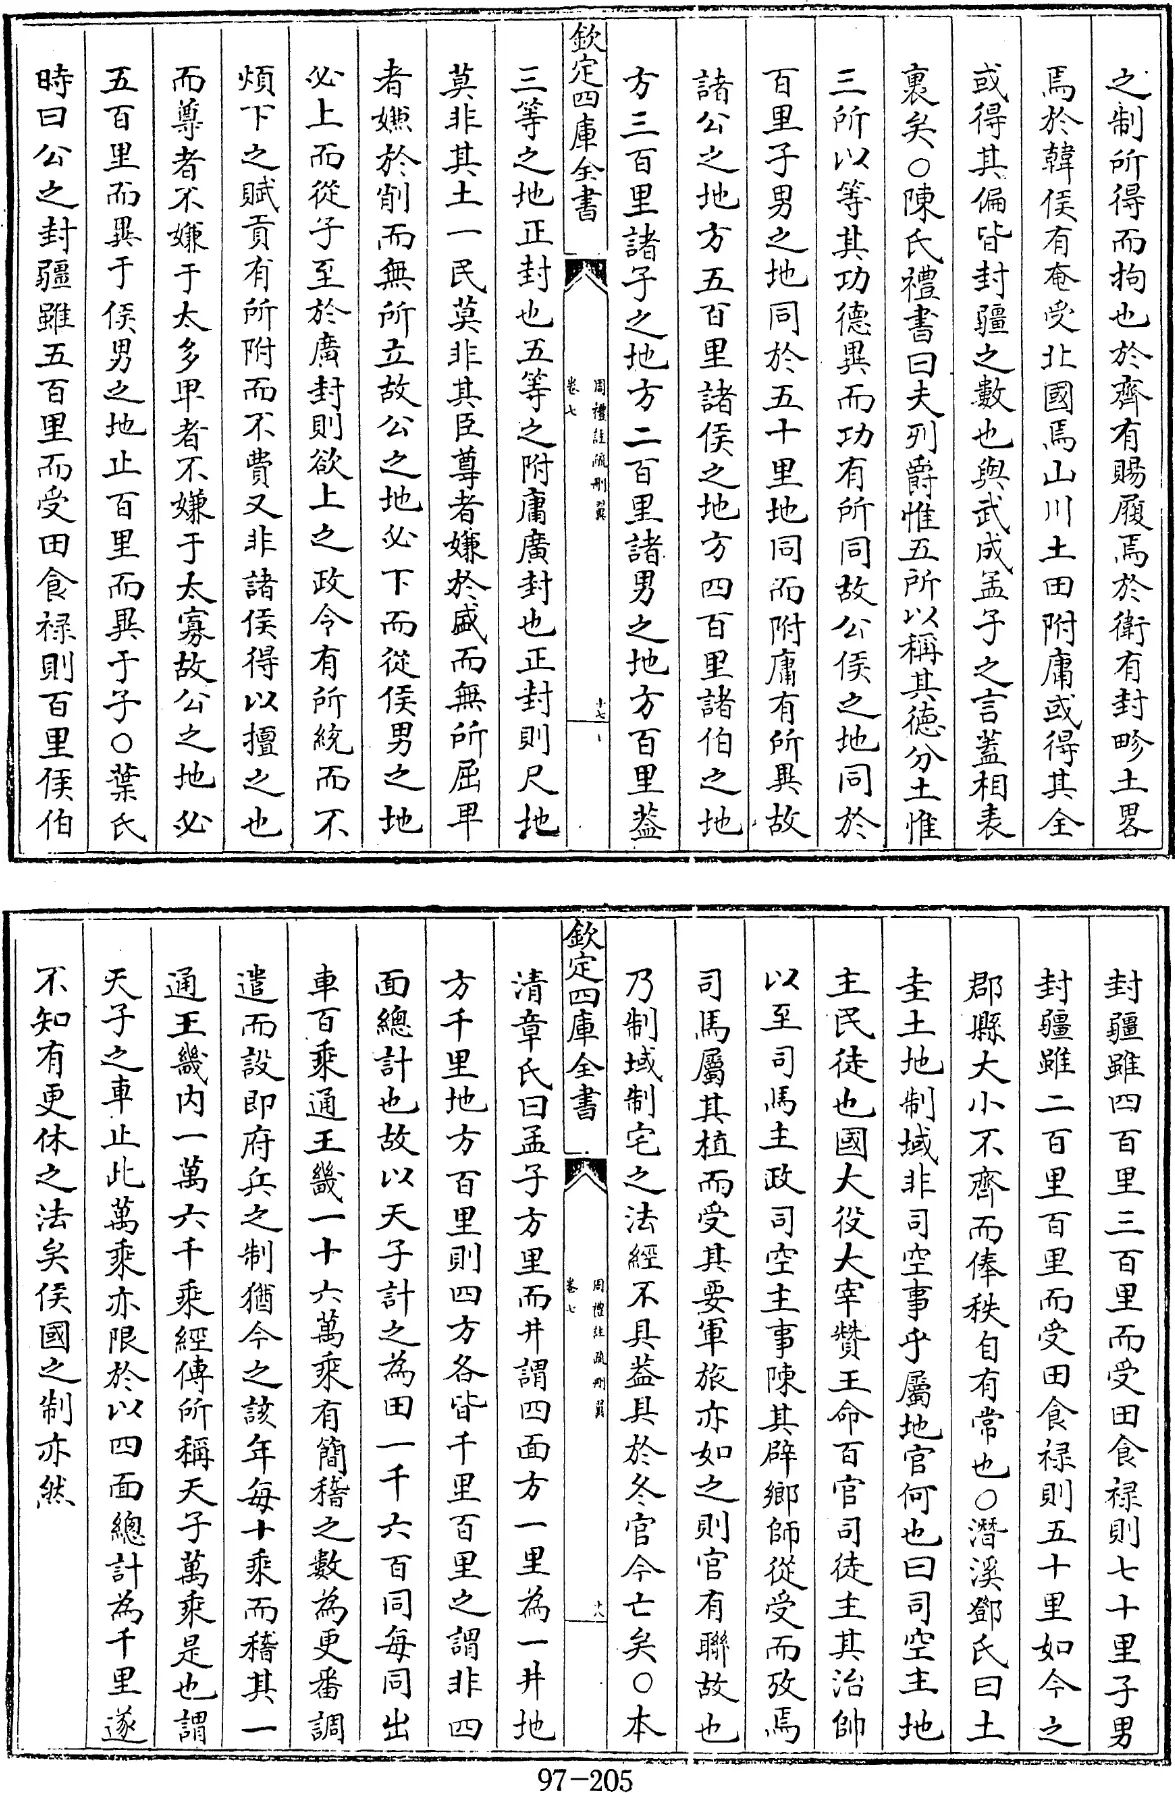 之制所得而拘也於齊有賜履焉於衛有封畛土畧
焉於韓侯有奄受北國焉山川土田附庸或得其全
或得其偏皆封疆之數也與武成孟子之言蓋相表
裏矣○陳氏禮書曰夫列爵惟五所以稱其德分土惟
三所以等其功德異而功有所同故公侯之地同於
百里子男之地同於五十里地同而附庸有所異故
諸公之地方五百里諸侯之地方四百里諸伯之地
方三百里諸子之地方二百里諸男之地方百里葢
欽定四庫全書
周禮註疏刪翼
卷七
十七
三等之地正封也五等之附庸廣封也正封則尺地
莫非其土一民莫非其臣尊者嫌於盛而無所屈卑
者嫌於削而無所立故公之地必下而從侯男之地
必上而從子至於廣封則欲上之政令有所統而不
煩下之賦貢有所附而不費又非諸侯得以擅之也
而尊者不嫌于太多卑者不嫌于太寡故公之地必
五百里而異于侯男之地止百里而異于子○葉氏
時曰公之封疆雖五百里而受田食禄則百里侯伯
封疆雖四百里三百里而受田食禄則七十里子男
封疆雖二百里百里而受田食禄則五十里如今之
郡縣大小不齊而俸秩自有常也○潛溪鄧氏曰土
圭土地制域非司空事乎屬地官何也曰司空主地
主民徒也國大役大宰贊王命百官司徒主其治帥
以至司馬主政司空主事陳其辟鄉師從受而攷焉
司馬屬其植而受其要軍旅亦如之則官有聯故也
乃制域制宅之法經不具葢具於冬官今亡矣○本
欽定四庫全書
周禮註疏刪翼
卷七
十八
清章氏曰孟子方里而井謂四面方一里為一井地
方千里地方百里則四方各皆千里百里之謂非四
面總計也故以天子計之為田一千六百同每同出
車百乘通王畿一十六萬乘有簡稽之數為更番調
遣而設即府兵之制猶今之該年每十乘而稽其一
通王畿内一萬六千乘經傳所稱天子萬乘是也謂
天子之車止此萬乘亦限於以四面總計為千里遂
不知有更休之法矣侯國之制亦然
97-205